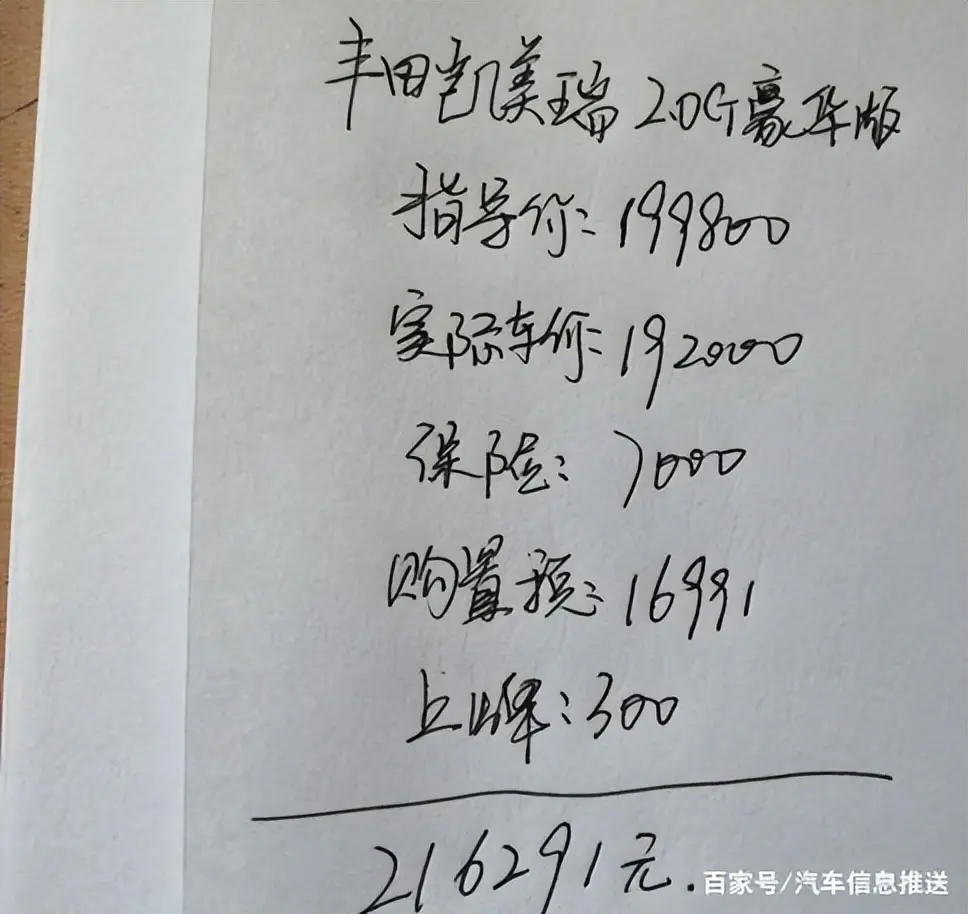 丰田凯美瑞 2.0G豪华版
指导价:199800
实际车价:192000
保险:7000
购置税:16991
上牌:300
216291元.
百家号/汽车信息推送